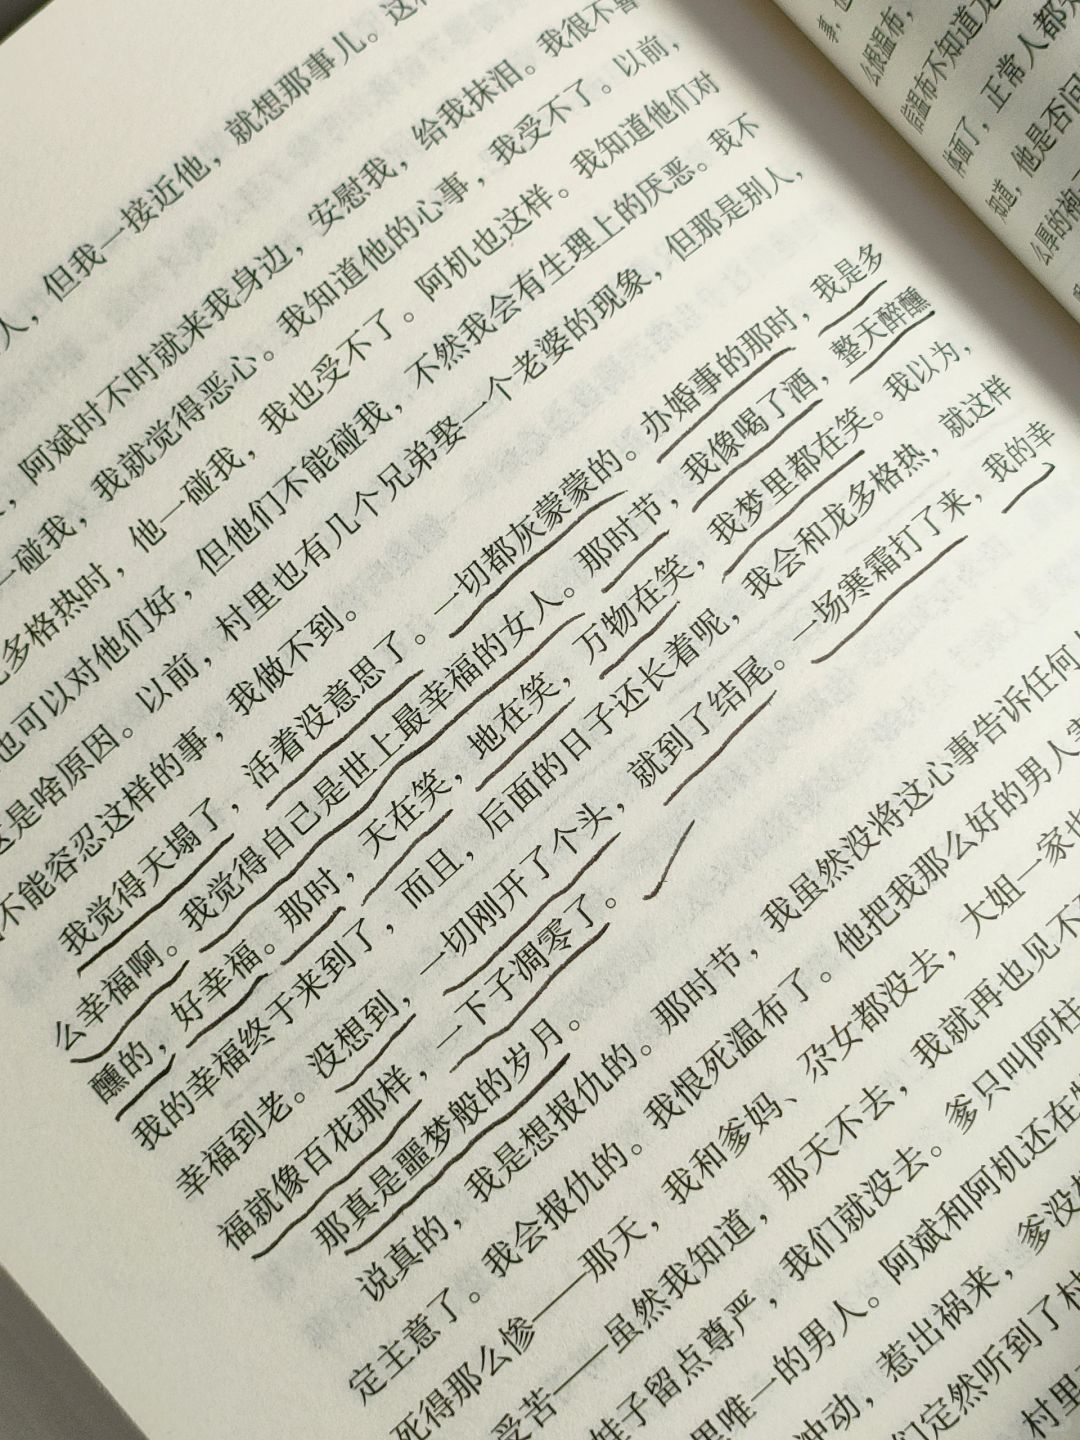 人，但我一接近他，就想那事儿。这
阿斌时不时就来我身边，安慰我，给我抹泪。我很不喜
一碰我，我就觉得恶心。我知道他的心事，我受不了。以前，
多格热时，他一碰我，我也受不了。阿机也这样。我知道他们对
也可以对他们好，但他们不能碰我，不然我会有生理上的厌恶。我不
这是啥原因。以前，村里也有几个兄弟娶一个老婆的现象，但那是别人，
不能容忍这样的事，我做不到。
我觉得天塌了，活着没意思了。一切都灰蒙蒙的。办婚事的那时，我是多
么幸福啊。我觉得自己是世上最幸福的女人。那时节，我像喝了酒，整天醉醺
醺的，好幸福。那时，天在笑，地在笑，万物在笑，我梦里都在笑。我以为，
我的幸福终于来到了，而且，后面的日子还长着呢，我会和龙多格热，就这样
幸福到老。没想到，一切刚开了个头，就到了结尾。一场寒霜打了来，我的幸
福就像百花那样，一下子凋零了。
那真是噩梦般的岁月。
说真的，我是想报仇的。那时节，我虽然没将这心事告诉任何
定主意了。我会报仇的。我恨死温布了。他把我那么好的男人害
死得那么惨——那天，我和爹妈、尕女都没去，大姐一家也
受苦——虽然我知道，那天不去，我就再也见不
娃子留点尊严，我们就没去。爹只叫阿柱
里唯一的男人。阿斌和阿机还在
冲动，惹出祸来，爹没
们定然听到了村
村里
事，
么恨温布，
温布不知道龙
体面了，正常人都
知道，他是否问
么厚的袍